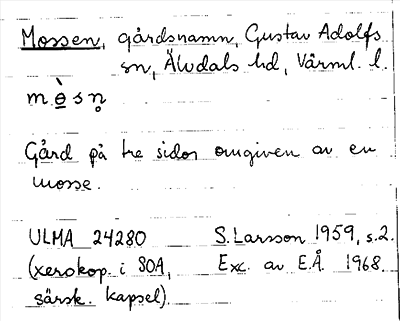 Mossen, gårdsnamn, Gustav Adolfs
sn, Älvdals hd, Värml. l.
m ò̲ s n̥
Gård på tre sidor omgiven av en
mosse.
ULMA 24280 S. Larsson 1959, s.2.
(xerokop. i SOA, Exc. av E.Å. 1968.
särsk. kapsel).